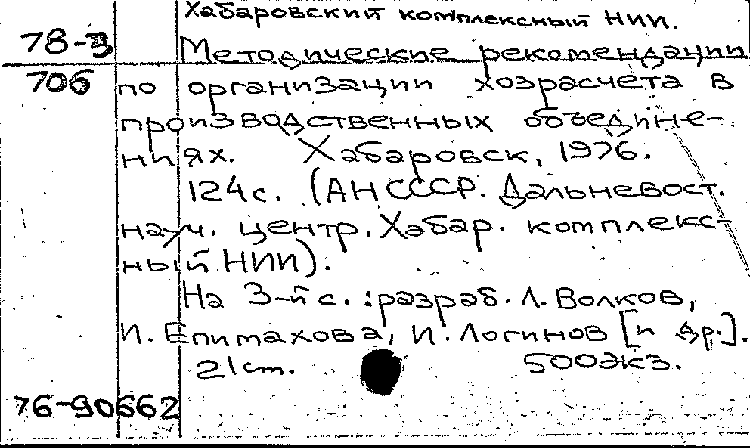 Хабаровский комплексный НИИ.
78-3 Методические рекомендации
706 по организации хозрасчета в
производственных объедине-
ниях. Хабаровск, 1976.
124с. (АН СССР. Дальневост.
науч. центр. Хабар. комплекс-
ный НИИ).
На 3-й с.: разраб. Л. Волков,
И. Епимахова, И. Логинов [и др.].
21 см. 500 экз.
76-90662